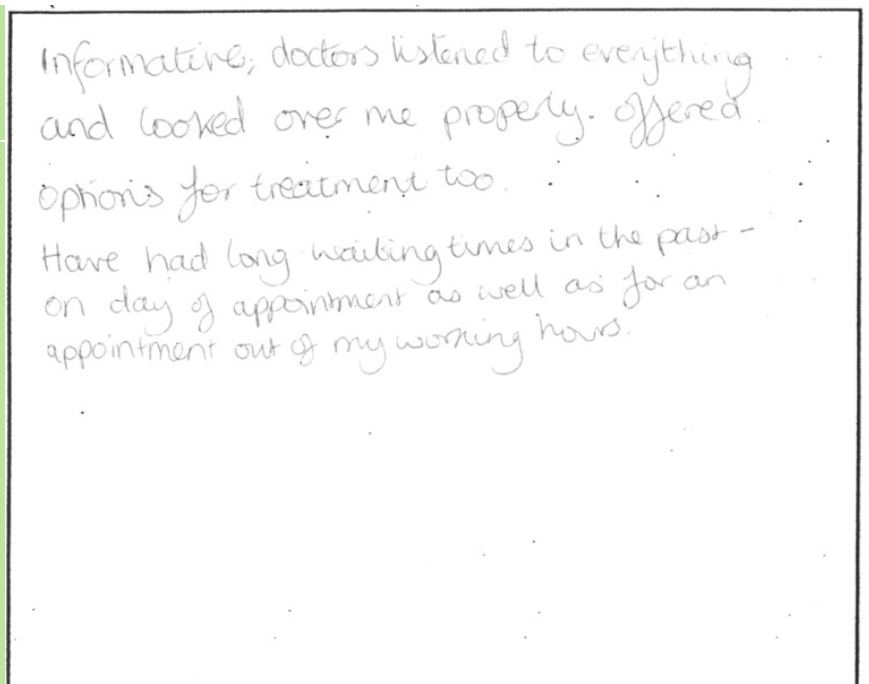 Informative, doctors listened to everything
and looked over me properly. offered
options for treatment too.
Have had long waiting times in the past -
on day of appointment as well as for an
appointment out of my working hours.